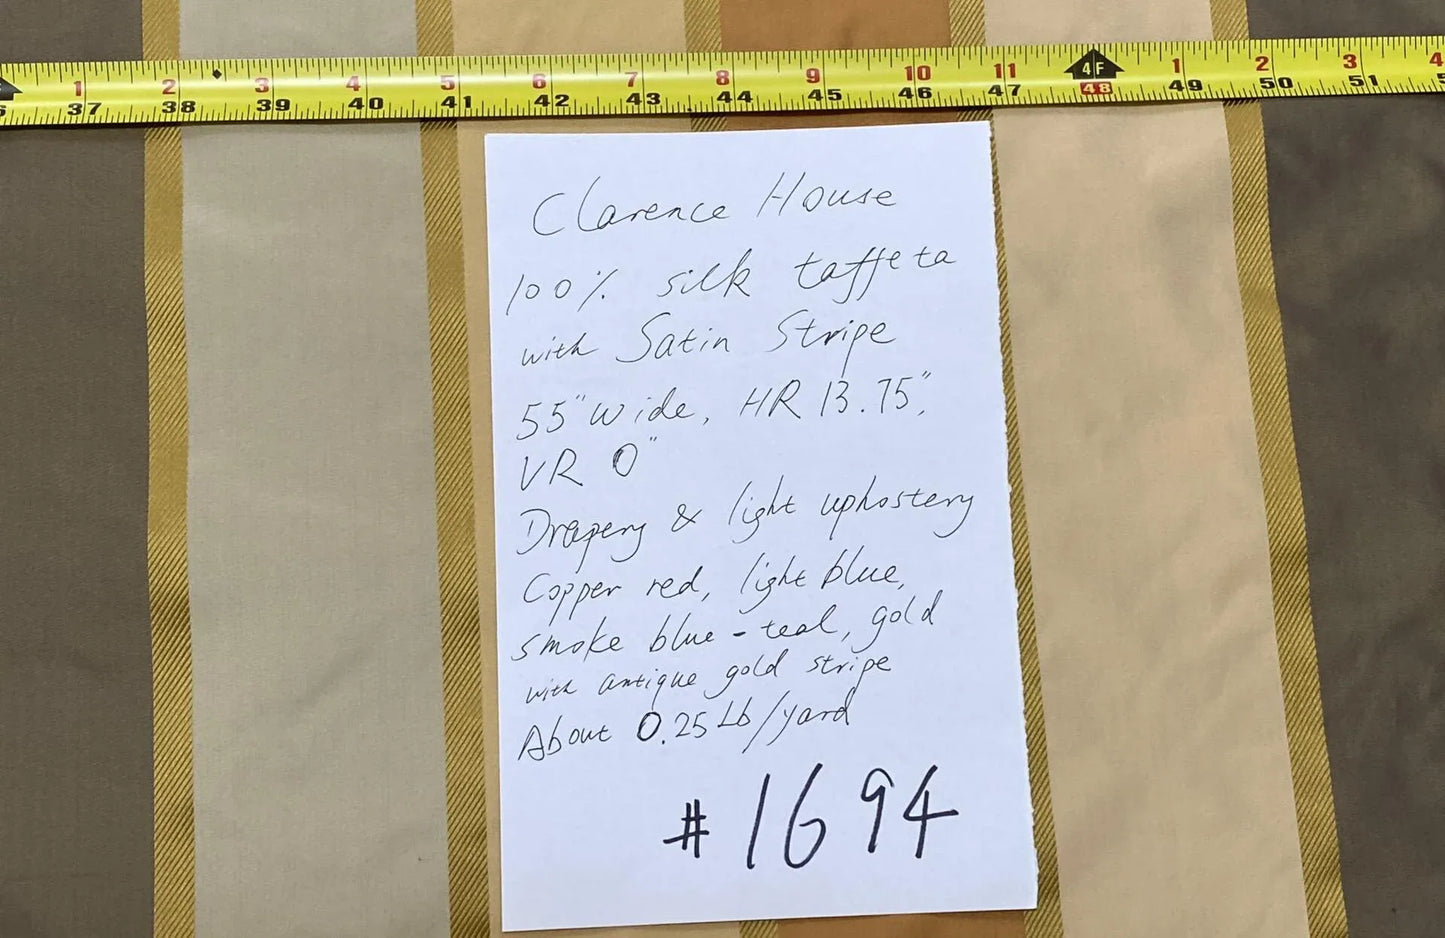 1 2 3 4 5 6 7 8 9 10 11 4F 1 2 3 4
37 38 39 40 41 42 43 44 45 46 47 48 49 50 51
Clarence House
100% silk taffeta
with Satin Stripe
55" wide, HR 13.75",
VR 0"
Drapery & light uphostery
Copper red, light blue,
smoke blue - teal, gold
with antique gold stripe
About 0.25 Lb/yard
#1694